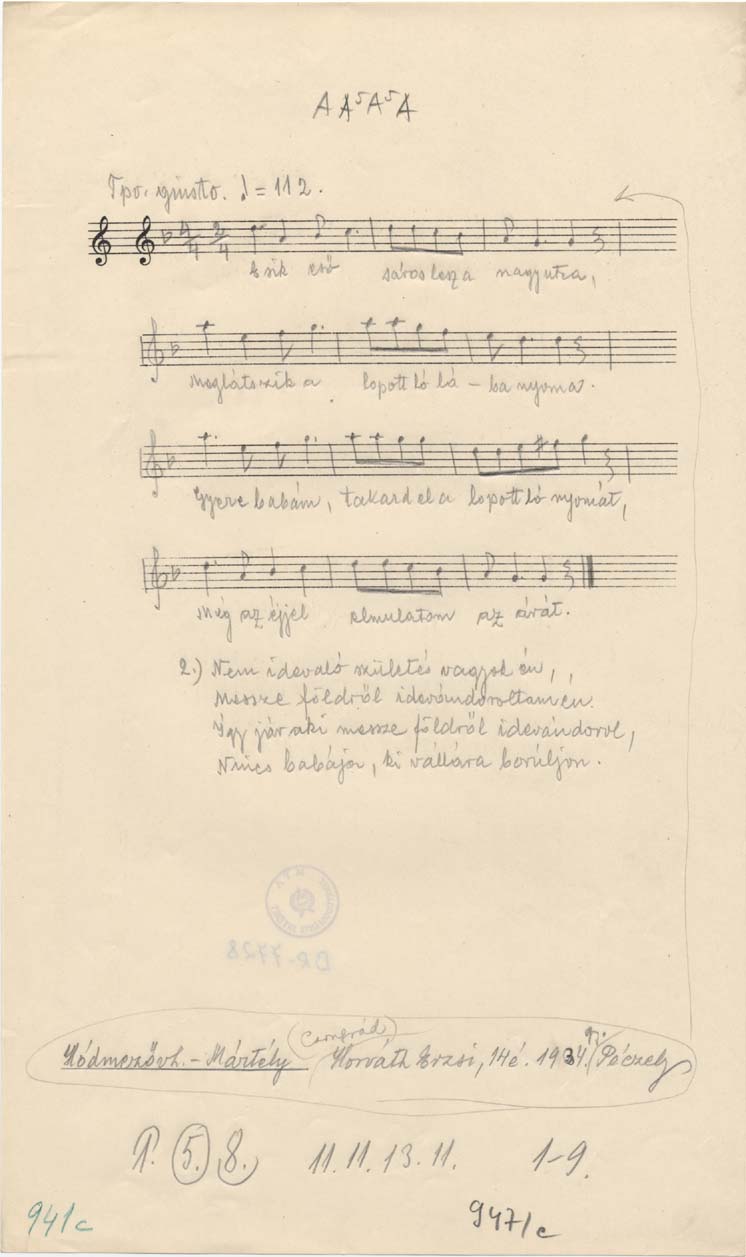 A A⁵ A⁵ A
Tpo. giusto. ♩ = 112.
4/4 2/4
Esik eső sáros lesz a nagyutca,
Meglátszik a lopott ló lá - ba nyoma.
Gyere babám, takard el a lopott ló nyomát,
Még az éjjel elmulatom az árát.
2.) Nem idevaló születés vagyok én,
Messze földről idevándoroltam én.
Így jár aki messze földről idevándorol,
Nincs babája, ki vállára borúljon.
DR-7728
(Csongrád)
Hódmezővh. - Mártély Horváth Erzsi, 14é. 1934. Péczely
P. 5. 8. 11. 11. 13. 11. 1-9.
941c 947/c